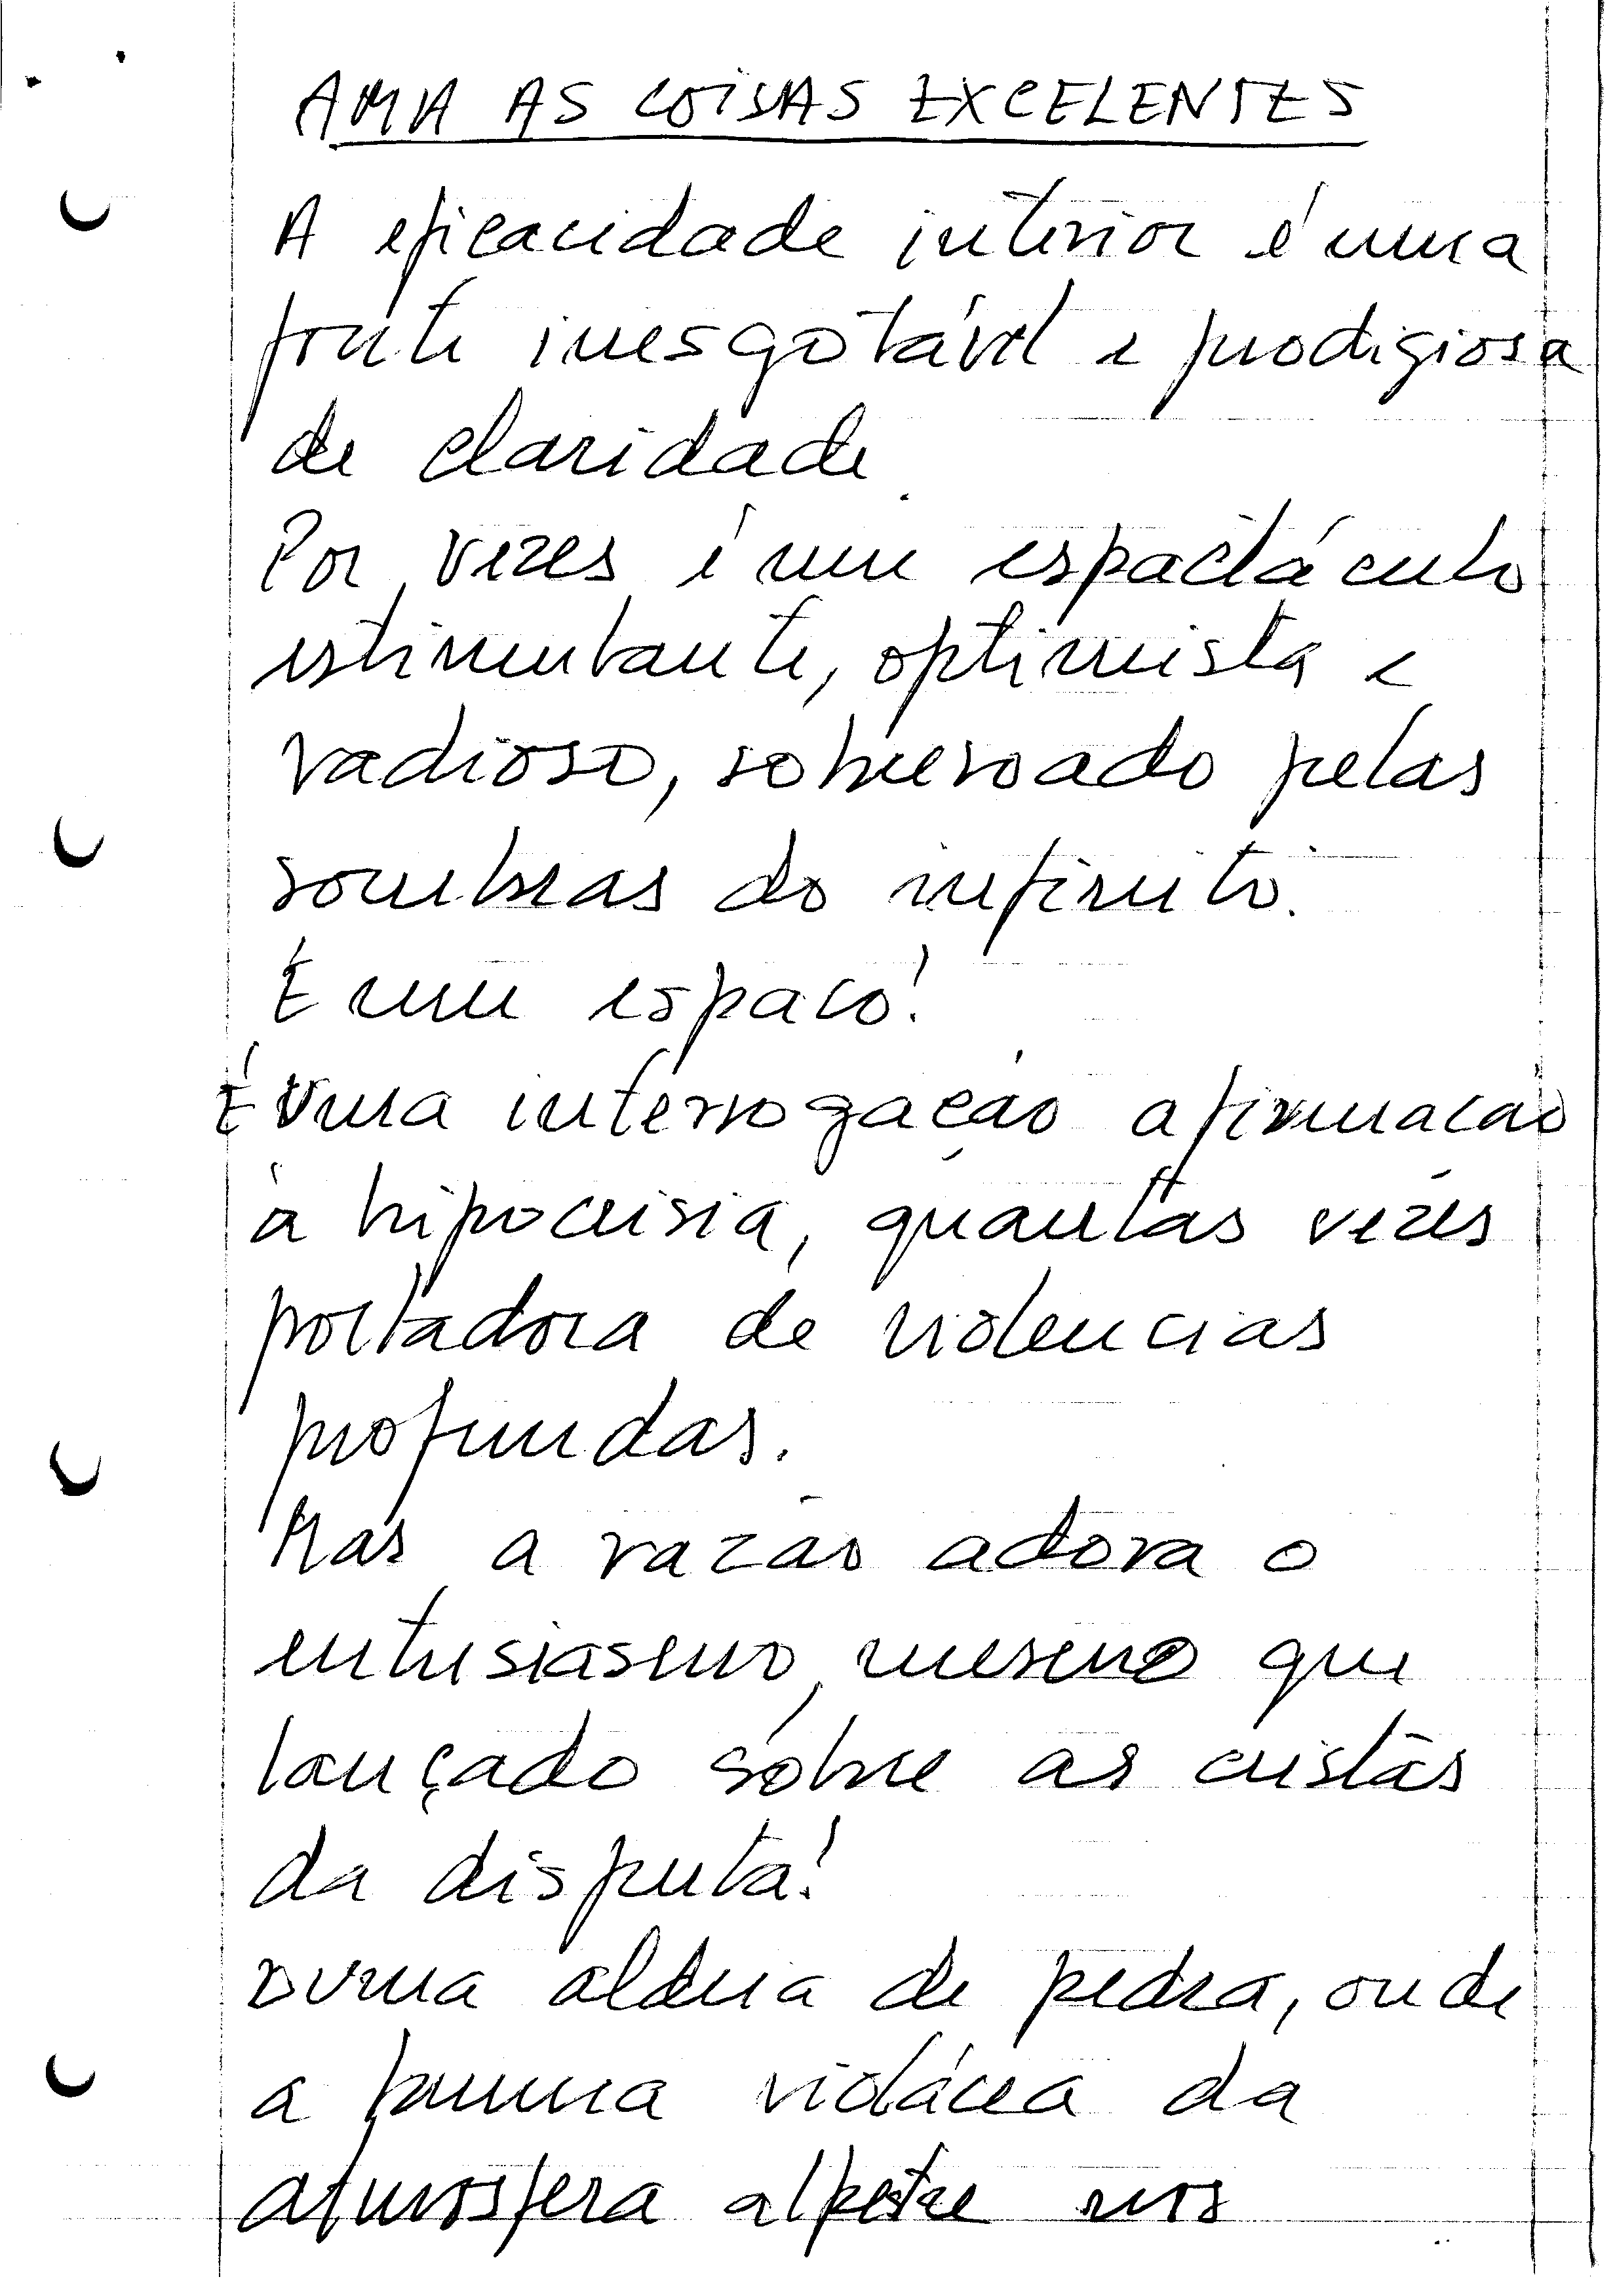 AMA AS COISAS EXCELENTES
A eficacidade interior é uma
fonte inesgotável e prodigiosa
de claridade.
Por vezes é um espactáculo
estimulante, optimista e
radioso, sobrevoado pelas
sombras do infinito.
É um espaço!
É uma interrogação afirmação
à hipocrisia, quantas vezes
portadora de violencias
profundas.
Mas a razão adora o
entusiasmo, mesmo que
lançado sôbre as cristas
da disputa!
Numa aldeia de pedra, onde
a bruma violácea da
atmosfera alpestre nos